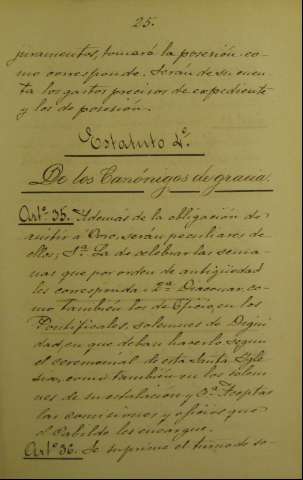 25.
juramentos, tomará la posesión co-
mo corresponde. Serán de su cuen-
ta los gastos precisos de expediente
y los de posesión.
Estatuto 4º
De los Canónigos de gracia.
Artº 35. Además de la obligación de
asistir a Coro, serán peculiares de
ellos; 1ª La de celebrar las sema-
nas que por orden de antigüedad
les corresponda: 2ª Diaconar, co-
mo también los de Oficio, en los
Pontificales, solemnes de Digni-
dad, en que deban hacerlo segun
el ceremonial de esta Santa Igle-
sia, como también en los solem-
nes de su estación y 3ª Aceptar
las comisiones y oficios que
el Cabildo les encargue.
Artº 36. Se suprime el turno de so-